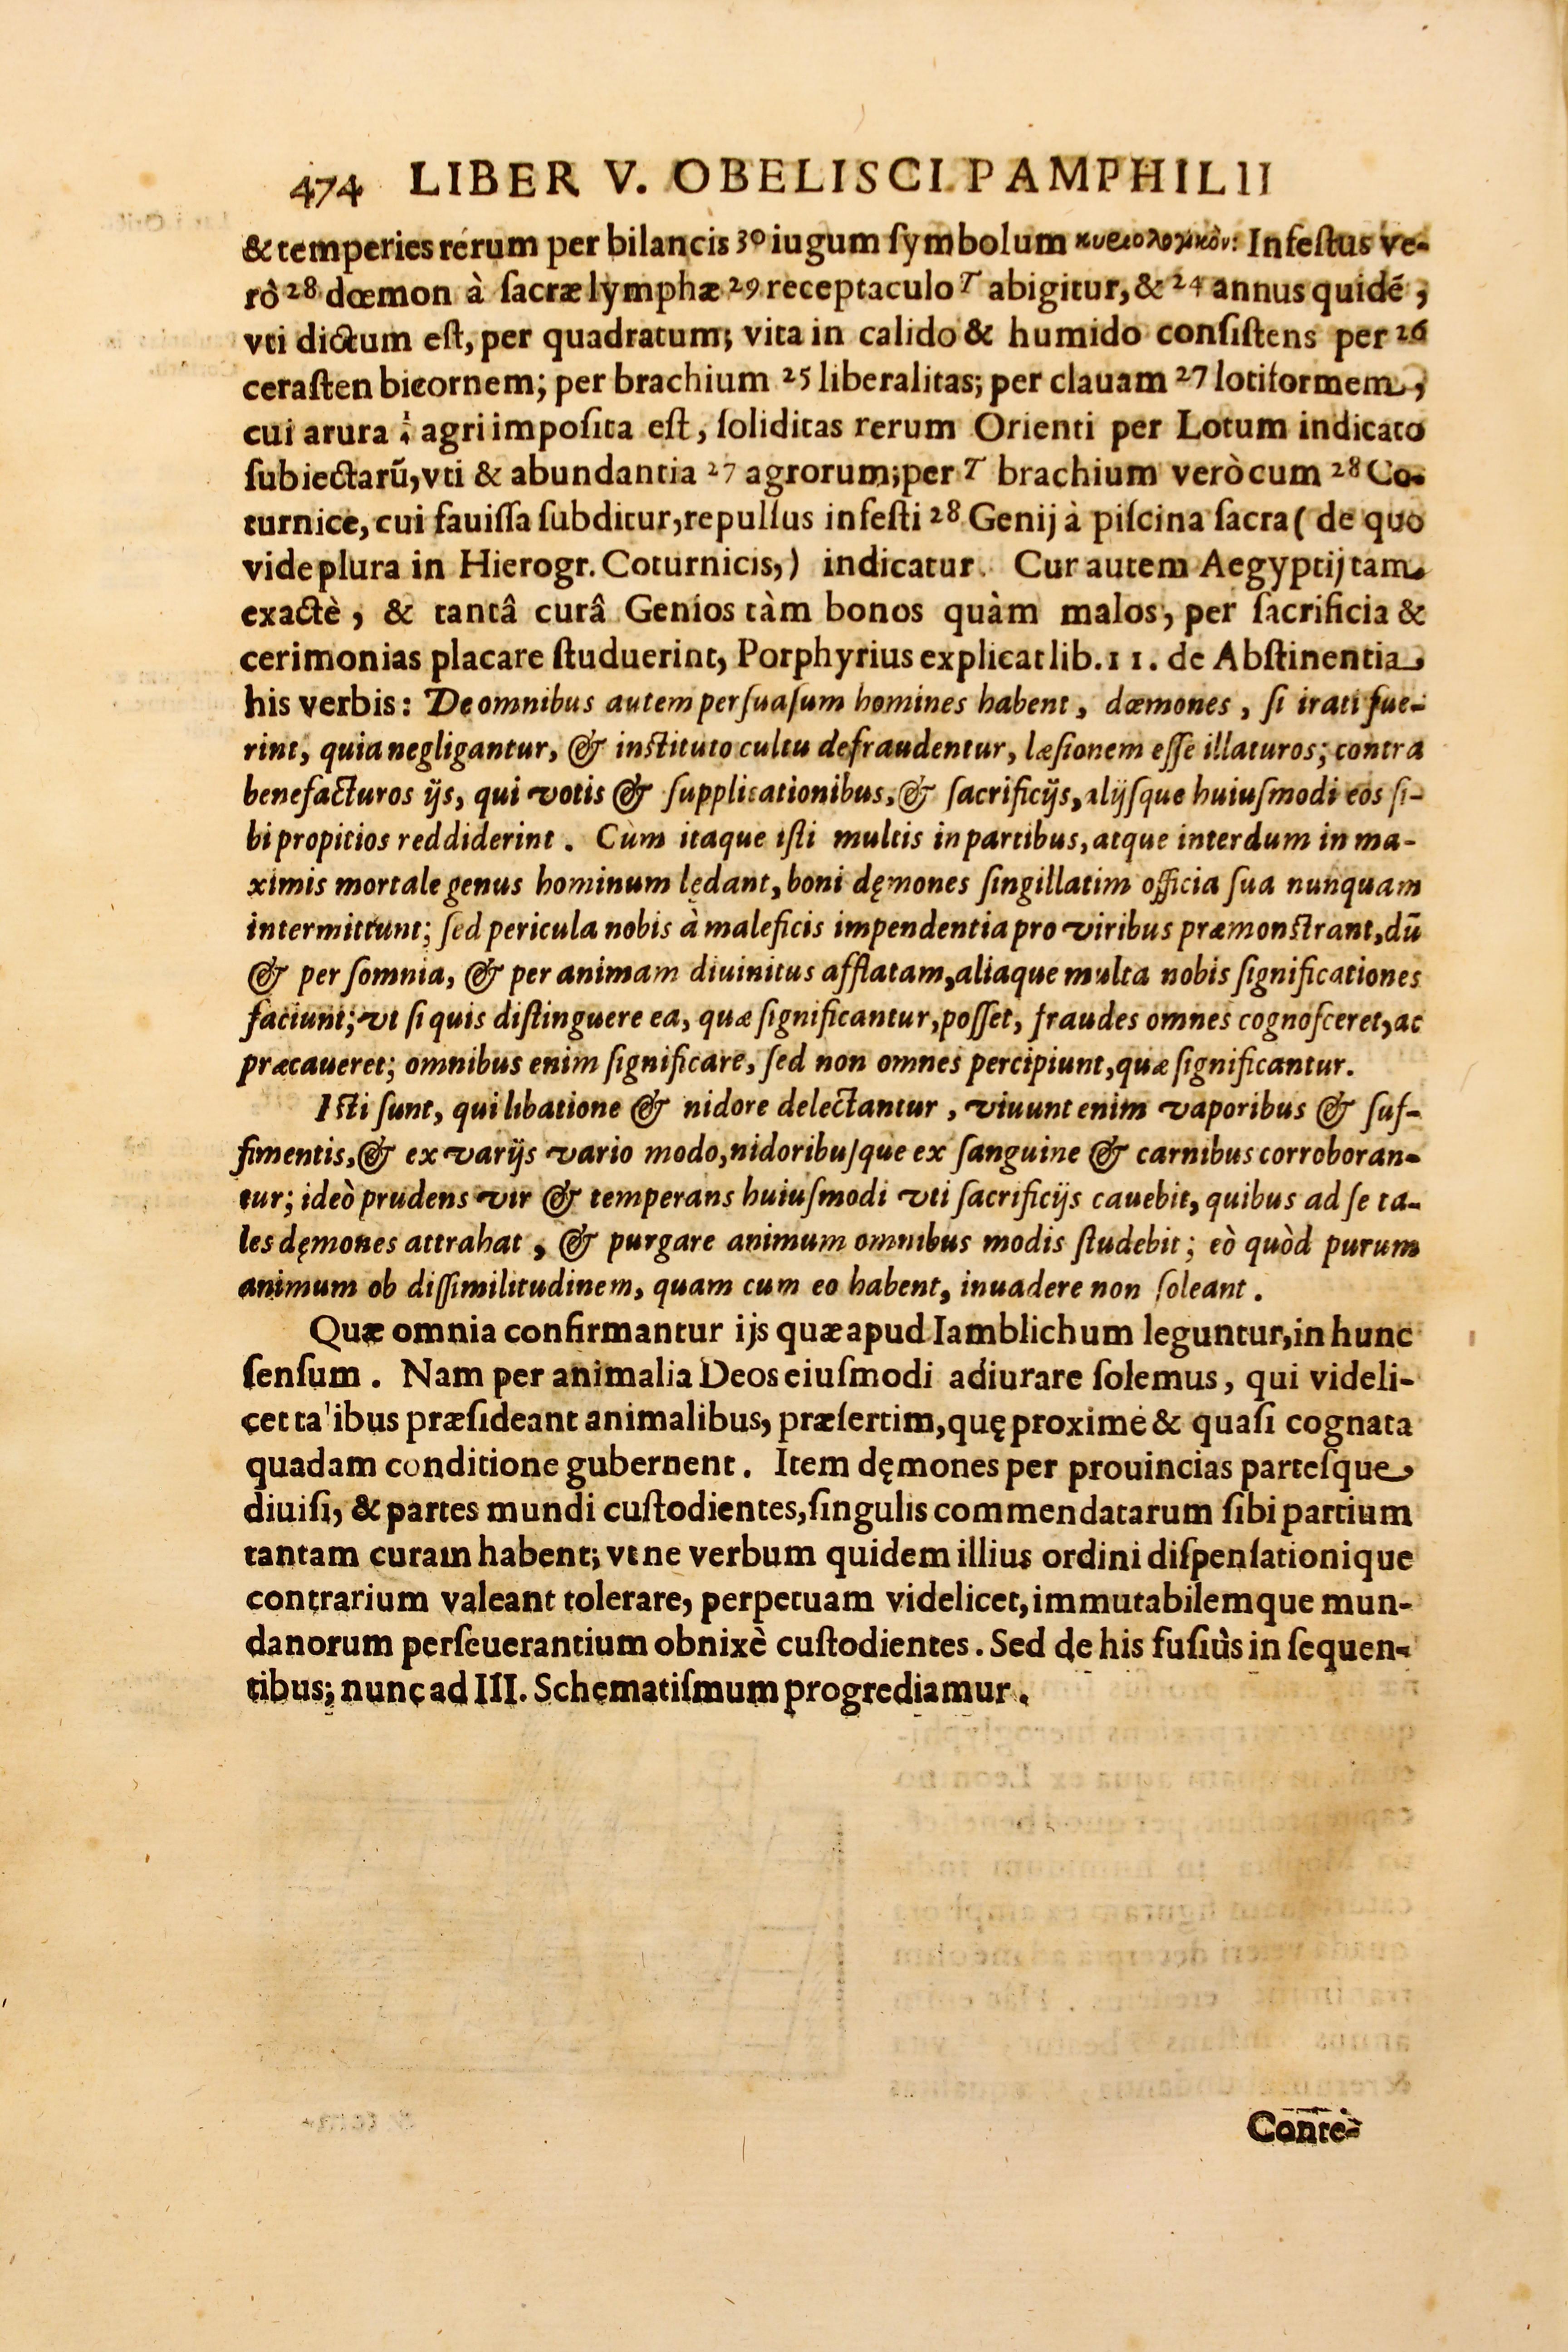 474 LIBER V. OBELISCI PAMPHILII
& temperies rerum per bilancis 30 iugum ſymbolum κυριολογικὸν: Infeſtus ve-
rò 28 dœmon à ſacræ lymphæ 29 receptaculo T abigitur, & 24 annus quidẽ,
vti dictum eſt, per quadratum; vita in calido & humido conſiſtens per 26
ceraſten bicornem; per brachium 25 liberalitas; per clauam 27 lotiformem,
cui arura i agri impoſita eſt, ſoliditas rerum Orienti per Lotum indicato
ſubiectarũ, vti & abundantia 27 agrorum; per T brachium verò cum 28 Co-
turnice, cui fauiſſa ſubditur, repulſus infeſti 28 Genij à piſcina ſacra ( de quo
vide plura in Hierogr. Coturnicis,) indicatur. Cur autem Aegyptij tam
exactè, & tantâ curâ Genios tàm bonos quàm malos, per ſacrificia &
cerimonias placare ſtuduerint, Porphyrius explicat lib. 11. de Abſtinentia,
his verbis: De omnibus autem perſuaſum homines habent, dæmones, ſi irati fue-
rint, quia negligantur, & inſtituto cultu defraudentur, læſionem eſſe illaturos; contra
benefacturos ijs, qui votis & ſupplicationibus, & ſacrificijs, alijſque huiuſmodi eos ſi-
bi propitios reddiderint. Cùm itaque iſti multis in partibus, atque interdum in ma-
ximis mortale genus hominum lędant, boni dęmones ſingillatim officia ſua nunquam
intermittunt; ſed pericula nobis à maleficis impendentia pro viribus præmonſtrant, dũ
& per ſomnia, & per animam diuinitus afflatam, aliaque multa nobis ſignificationes
faciunt; vt ſi quis diſtinguere ea, quæ ſignificantur, poſſet, fraudes omnes cognoſceret, ac
præcaueret; omnibus enim ſignificare, ſed non omnes percipiunt, quæ ſignificantur.
Iſti ſunt, qui libatione & nidore delectantur, viuunt enim vaporibus & ſuf-
fimentis, & ex varijs vario modo, nidoribuſque ex ſanguine & carnibus corroboran-
tur; ideò prudens vir & temperans huiuſmodi vti ſacrificijs cauebit, quibus ad ſe ta-
les dęmones attrahat, & purgare animum omnibus modis ſtudebit; eò quòd purum
animum ob diſſimilitudinem, quam cum eo habent, inuadere non ſoleant.
Quæ omnia confirmantur ijs quæ apud Iamblichum leguntur, in hunc
ſenſum. Nam per animalia Deos eiuſmodi adiurare ſolemus, qui videli-
cet ta'ibus præſideant animalibus, præſertim, quę proximè & quaſi cognata
quadam conditione gubernent. Item dęmones per prouincias parteſque
diuiſi, & partes mundi cuſtodientes, ſingulis commendatarum ſibi partium
tantam curam habent; vt ne verbum quidem illius ordini diſpenſationique
contrarium valeant tolerare, perpetuam videlicet, immutabilemque mun-
danorum perſeuerantium obnixè cuſtodientes. Sed de his fuſiùs in ſequen-
tibus; nunc ad III. Schematiſmum progrediamur.
Conte-